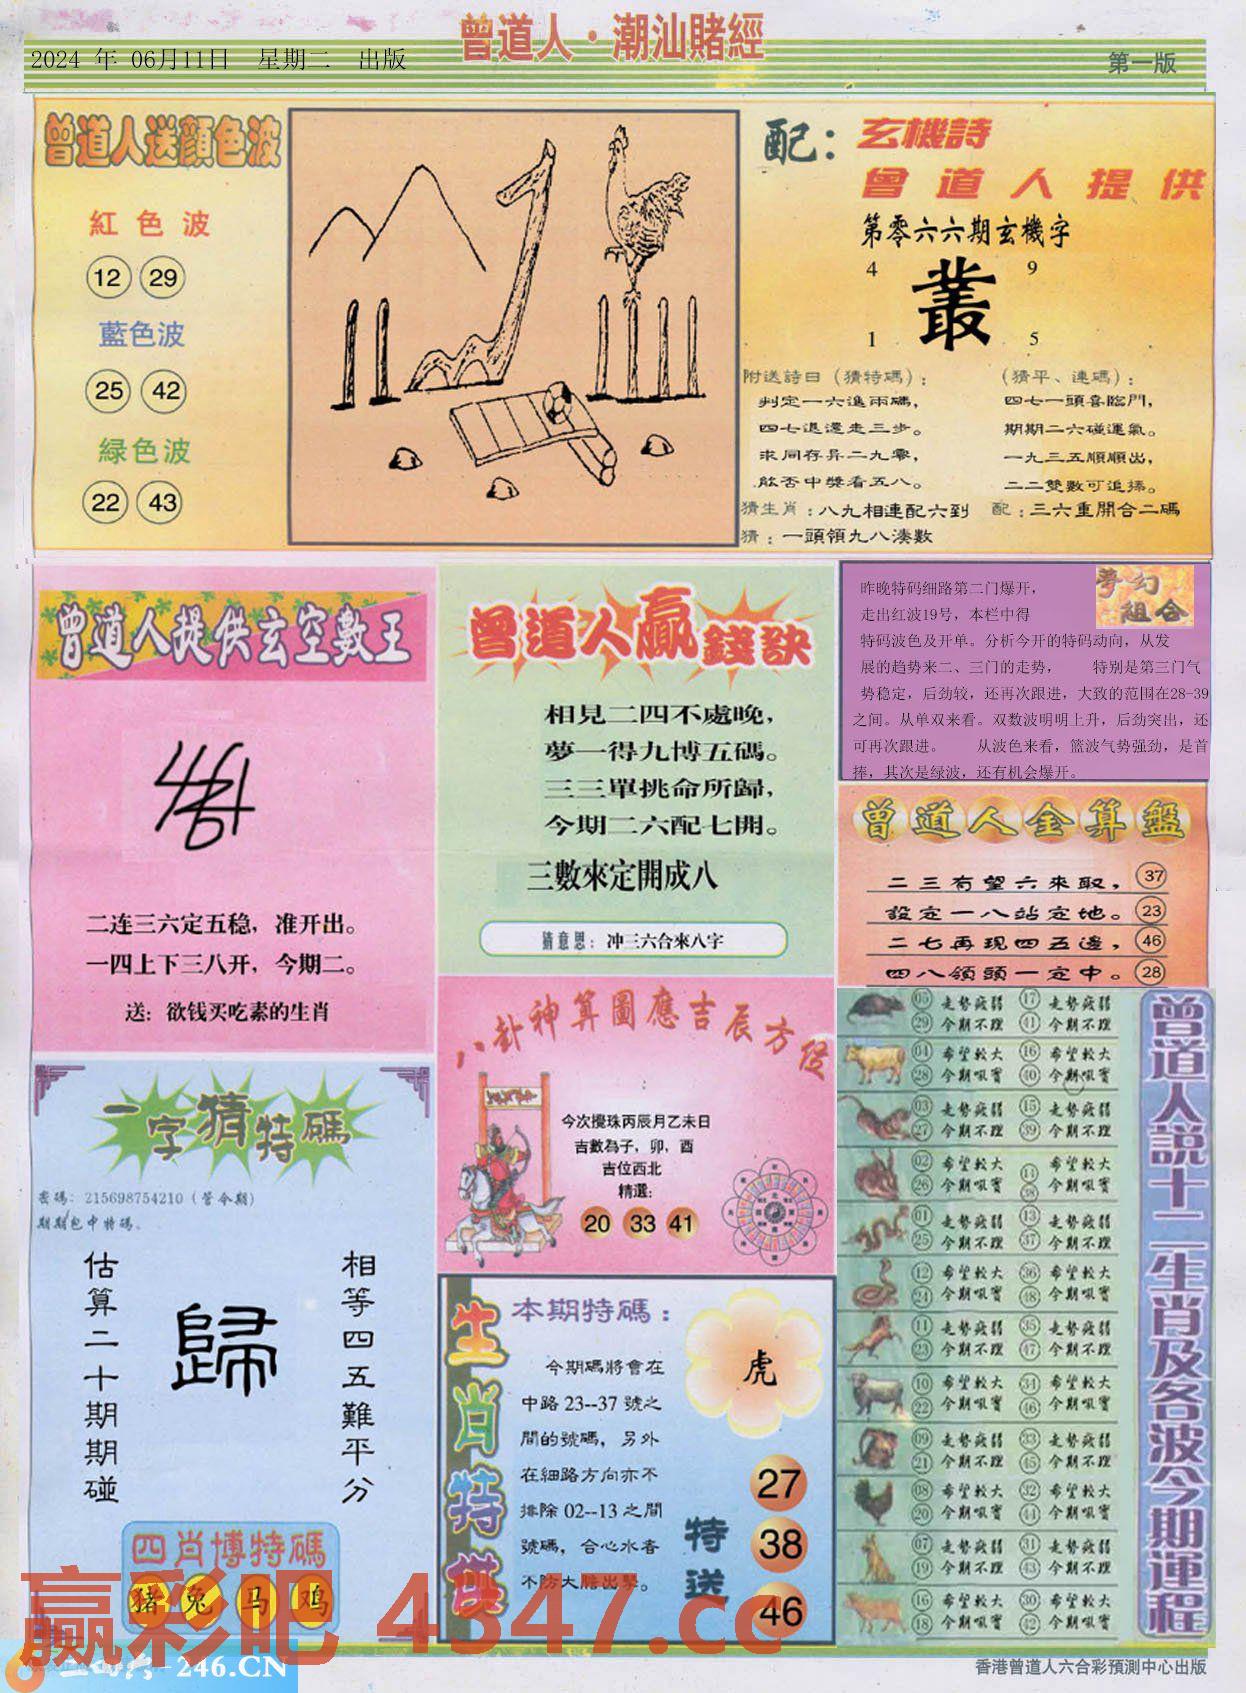 曾道人·潮汕賭經
2024 年 06月11日 星期二 出版
第一版
曾道人送顏色波
紅色波
12 29
藍色波
25 42
綠色波
22 43
配：玄機詩
曾道人提供
第零六六期玄機字
4 9
叢
1 5
附送詩曰（猜特碼）：
判定一六進兩碼，
四七退還走三步。
求同存异二九零，
能否中獎看五八。
（猜平、連碼）：
四七一頭喜臨門，
期期二六碰運氣。
一九三五順順出，
二二雙數可追擇。
猜生肖：八九相連配六到
配：三六重開合二碼
猜：一頭領九八湊數
曾道人提供玄空數王
二连三六定五稳，准开出。
一四上下三八开，今期二。
送：欲钱买吃素的生肖
曾道人贏錢訣
相見二四不處晚，
夢一得九博五碼。
三三單挑命所歸，
今期二六配七開。
三數來定開成八
猜意思：冲三六合來八字
夢幻組合
昨晚特码细路第二门爆开，
走出红波19号，本栏中得
特码波色及开单。分析今开的特码动向，从发
展的趋势来二、三门的走势， 特别是第三门气
势稳定，后劲较，还再次跟进，大致的范围在28-39
之间。从单双来看。双数波明明上升，后劲突出，还
可再次跟进。 从波色来看，篮波气势强劲，是首
捧，其次是绿波，还有机会爆开。
曾道人金算盤
二三有望六來取， 37
設定一八站定地。 23
二七再現四五邊， 46
四八領頭一定中。 28
八卦神算圖應吉辰方位
今次攪珠丙辰月乙未日
吉數為子，卯，酉
吉位西北
精選：
20 33 41
一字猜特碼
密碼：215698754210（管今期）
期期包中特碼。
估算二十期期碰
歸
相等四五難平分
四肖博特碼
猪 兔 马 鸡
生肖特供
本期特碼：
今期碼將會在
中路 23--37 號之
間的號碼，另外
在細路方向亦不
排除 02--13 之間
號碼，合心水者
不防大膽出擊。
虎
特送
27
38
46
曾道人説十二生肖及各波今期運程
05 走勢疲弱 17 走勢疲弱
29 今期不理 41 今期不理
04 希望較大 16 希望較大
28 今期吼實 40 今期吼實
03 走勢疲弱 15 走勢疲弱
27 今期不理 39 今期不理
02 希望較大 14 希望較大
26 今期吼實 38 今期吼實
01 走勢疲弱 13 走勢疲弱
25 今期不理 37 今期不理
12 希望較大 36 希望較大
24 今期吼實 48 今期吼實
11 走勢疲弱 35 走勢疲弱
23 今期不理 47 今期不理
10 希望較大 34 希望較大
22 今期吼實 46 今期吼實
09 走勢疲弱 33 走勢疲弱
21 今期不理 45 今期不理
08 希望較大 32 希望較大
20 今期吼實 44 今期吼實
07 走勢疲弱 31 走勢疲弱
19 今期不理 43 今期不理
16 希望較大 30 希望較大
18 今期吼實 42 今期吼實
赢彩吧 4347.cc
246.CN
香港曾道人六合彩預測中心出版